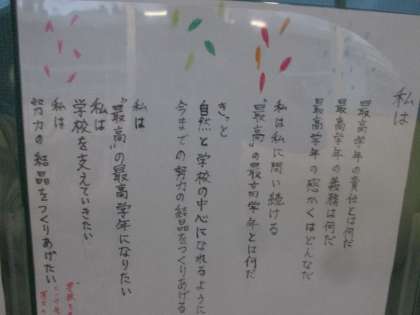 私は
最高学年の責任とは何だ
最高学年の義務は何だ
最高学年の感かくはどんなだ
私は私に問い続ける
"最高"の最高学年とは何だ
きっと
自然と学校の中心になれるように
今までの努力の結晶をつくりあげる
私は
"最高"の最高学年になりたい
私は
学校を支えていきたい
私は
努力の結晶をつくりあげたい